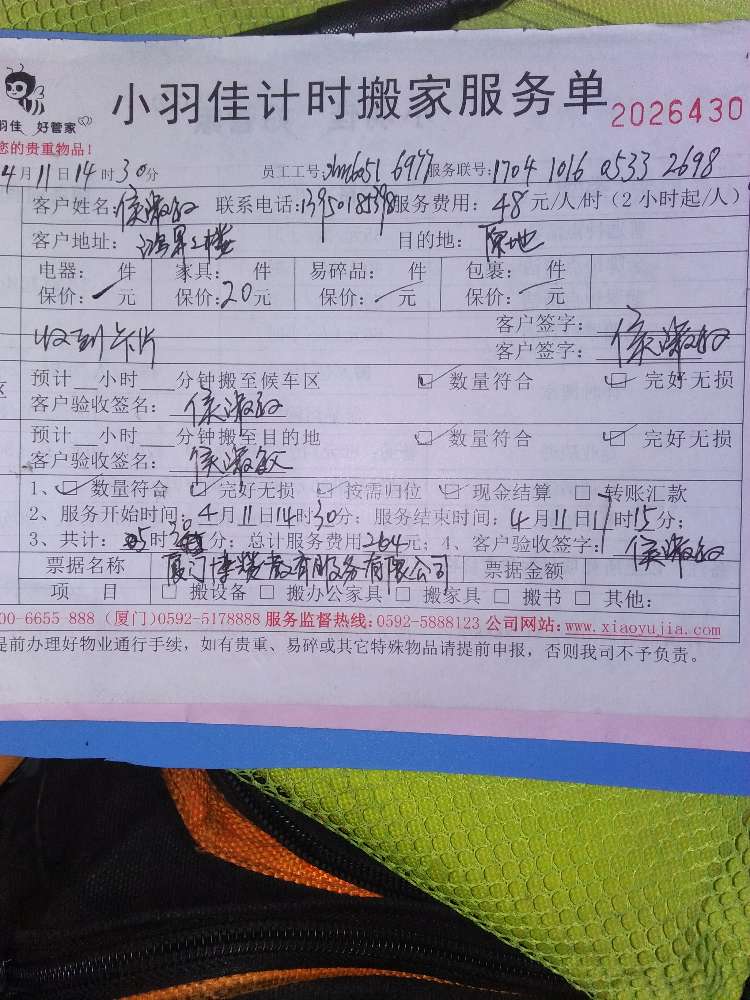 小羽佳计时搬家服务单 2026430
羽佳 好管家
您的贵重物品！
4月11日14时30分 员工工号: 6977 服务联号:1704 1016 0533 2698
客户姓名: 联系电话:13950185398 服务费用: 48元/人/时(2小时起/人)
客户地址: 2楼 目的地: 原地
电器: 件 家具: 件 易碎品: 件 包裹: 件
保价: 元 保价:20元 保价: 元 保价: 元
客户签字:
收到卡片 客户签字:
预计__小时___分钟搬至候车区 ☑ 数量符合 ☑ 完好无损
区 客户验收签名:
预计__小时___分钟搬至目的地 ☑ 数量符合 ☑ 完好无损
客户验收签名:
1、☑ 数量符合 ☑ 完好无损 ☑ 按需归位 ☑ 现金结算 □ 转账汇款
2、服务开始时间: 4月11日14时30分; 服务结束时间: 4月11日17时15分;
3、共计: 5时30分; 总计服务费用264元; 4、客户验收签字:
票据名称 厦门 教育服务有限公司 票据金额
项 目 □ 搬设备 □ 搬办公家具 □ 搬家具 □ 搬书 □ 其他:
00-6655 888 (厦门)0592-5178888 服务监督热线:0592-5888123 公司网站:www.xiaoyujia.com
提前办理好物业通行手续，如有贵重、易碎或其它特殊物品请提前申报，否则我司不予负责。